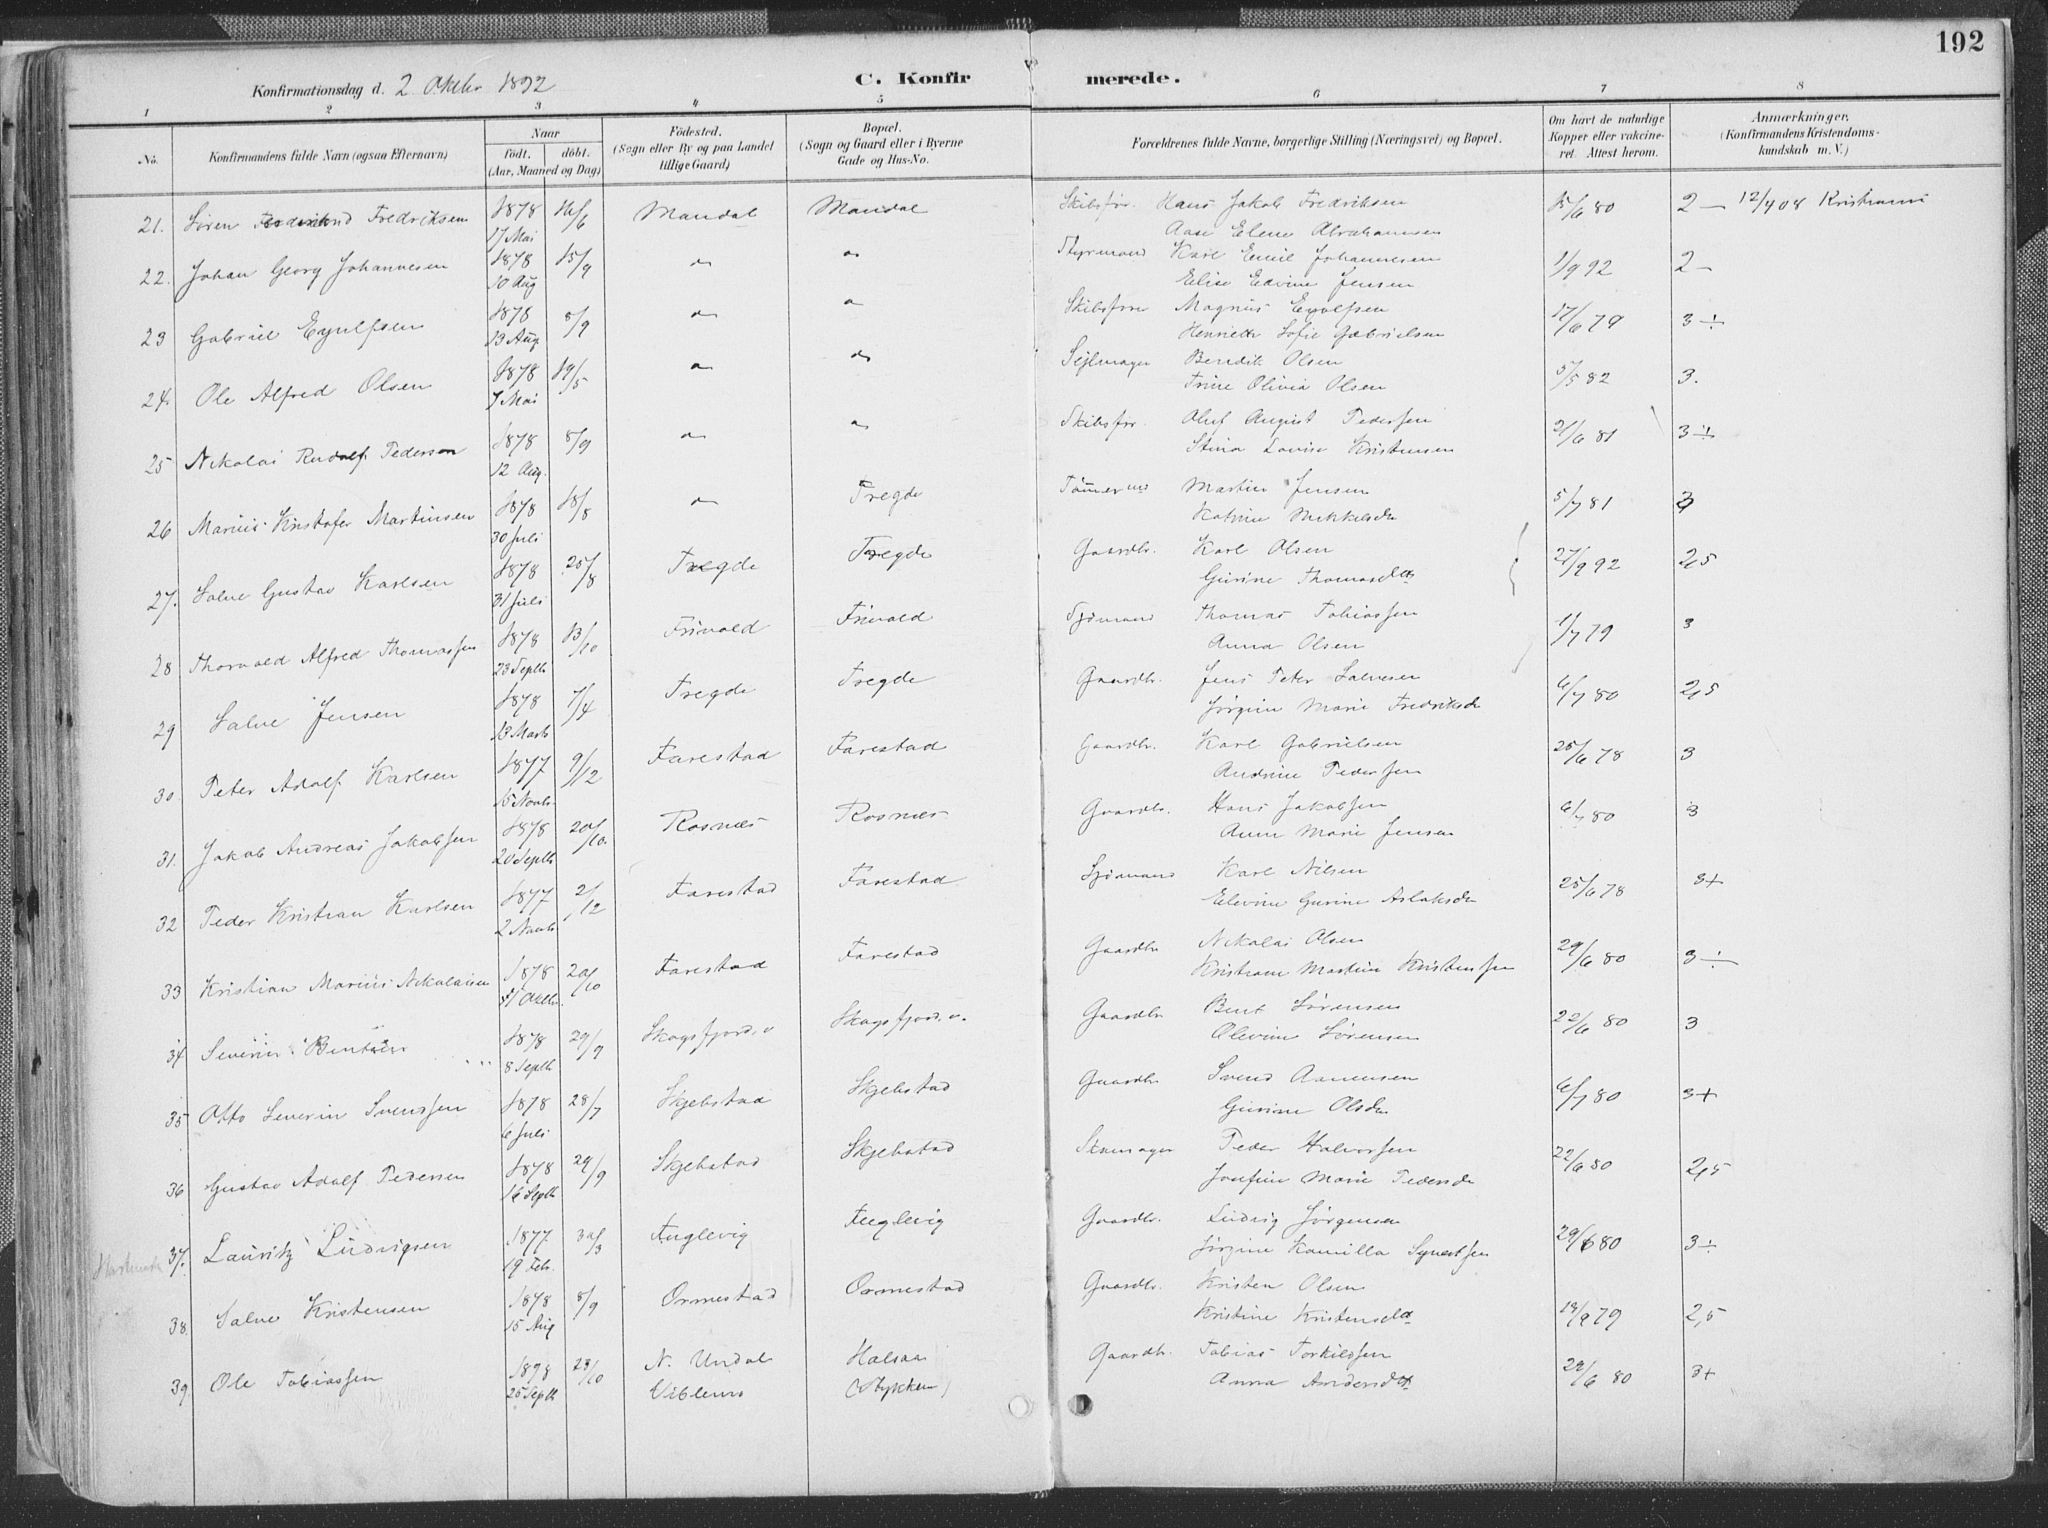 192
Konfirmationsdag d. 2 Oktbr 1892 C. Konfirmerede.
1 2 3 4 5 6 7 8
No. Konfirmandens fulde Navn (ogsaa Efternavn) Naar født. døbt. (Aar, Maaned og Dag) Fødested. (Sogn eller By og paa Landet tillige Gaard) Bopæl. (Sogn og Gaard eller i Byerne Gade og Hus-No. Forældrenes fulde Navne, borgerlige Stilling (Næringsvei) og Bopæl. Om havt de naturlige Kopper eller vakcineret. Attest herom. Anmærkninger. (Konfirmandens Kristendomskundskab m. V.)
21. Søren Fredriksen 1878 17 Mai 16/6 Mandal Mandal Skibsfør. Hans Jakob Fredriksen 15/6 80 2 — 12/4 08
Aase Elene Abrahamsen
22. Johan Georg Johannesen 1878 10 Aug 15/9 " " Styrmand Karl Emil Johannesen 1/9 92 2 —
Elise Edvine Jensen
23 Gabriel Eyulfsen 1878 13 Aug. 8/9 " " Skibsfører Magnus Eyulfsen 17/6 79 3 ÷
Henriette Sofie Gabrielsen
24. Ole Alfred Olsen 1878 7 Mai 19/5 " " Sejlmager Bendik Olsen 5/5 82 3.
Trine Olivia Olsen
25 Nikolai Rudolf Pedersen 1878 12 Aug. 8/9 " " Skibsfør. Oluf August Pederssen 21/6 81 3 ÷
Stina Lovise Kristensen
26 Marius Kristofer Martinsen 1878 30 Juli 18/8 " Tregde Tømmerm Martin Jensen 5/7 81 3
Katrine Mikkelsdr
27. Salve Gustav Karlsen 1878 31 Juli 25/8 Tregde Tregde Gaardbr. Karl Olsen 27/9 92 2,5
Gurine Thomasdtr
28 Thorvald Alfred Thomassen 1878 23 Septb 13/10 Frivold Frivold Sjømand Thomas Tobiassen 1/7 79 3
Anna Olsen
29 Salve Jensen 1878 13 Marts 7/4 Tregde Tregde Gaardbr. Jens Peter Salvesen 6/7 80 2,5
Jørgine Marie Fredriksdr
30 Peter Adolf Karlsen 1877 15 Novb. 9/12 Farestad Farestad Gaardbr. Karl Gabrielsen 25/6 78 3
Andrine Pederssen
31. Jakob Andreas Jakobssen 1878 20 Septb 20/10. Rosnæs Rosnæs Gaardbr. Hans Jakobssen 6/7 80 3
Anne Marie Jensen
32 Peder Kristian Karlsen 1877 2 Novb 2/12 Farestad Farestad Sjømand Karl Nilsen 25/6 78 3+
Elevine Gurine Aslaksdr
33 Kristian Marius Nikolaisen 1878 Oktbr. 20/10 Farestad Farestad Gaardbr Nikolai Olsen 29/6 80 3 ÷
Kristiane Martine Kristenssen
34 Severin Bentsen 1878 8 Septb 29/9 Skogsfjord. v Skogsfjord. v. Gaardbr Bent Sørensen 22/6 80 3
Olevine Sørensen
35 Otto Severin Svenssen 1878 6 Juli 28/7 Skjebstad Skjebstad Gaardbr Svend Aanensen 6/7 80 3+
Gurine Olsdr
36 Gustav Adolf Pedersen 1878 16 Septb 29/9 Skjebstad Skjebstad Skomager Peder Halvorssen 22/6 80 2,5
Josefine Marie Pedersdr
37. Lauritz Ludvigsen 1877. 19 Feb. 30/3 Fuglevig Fuglevig Gaardbr. Ludvig Jørgensen 29/6 80 3 ÷
Jørgine Kamilla Syvertsen
38. Salve Kristensen 1878 15 Aug 8/9 Ormestad Ormestad Gaardbr. Kristen Olsen 19/9 79 2,5
Kristine Kristensdtr
39 Ole Tobiassen 1878 25 Septb 23/10 N. Undal Halsaa Gaardbr. Tobias Torkildssen 29/6 80 3+
Viblemo (Stykken) Anna Andersdtr